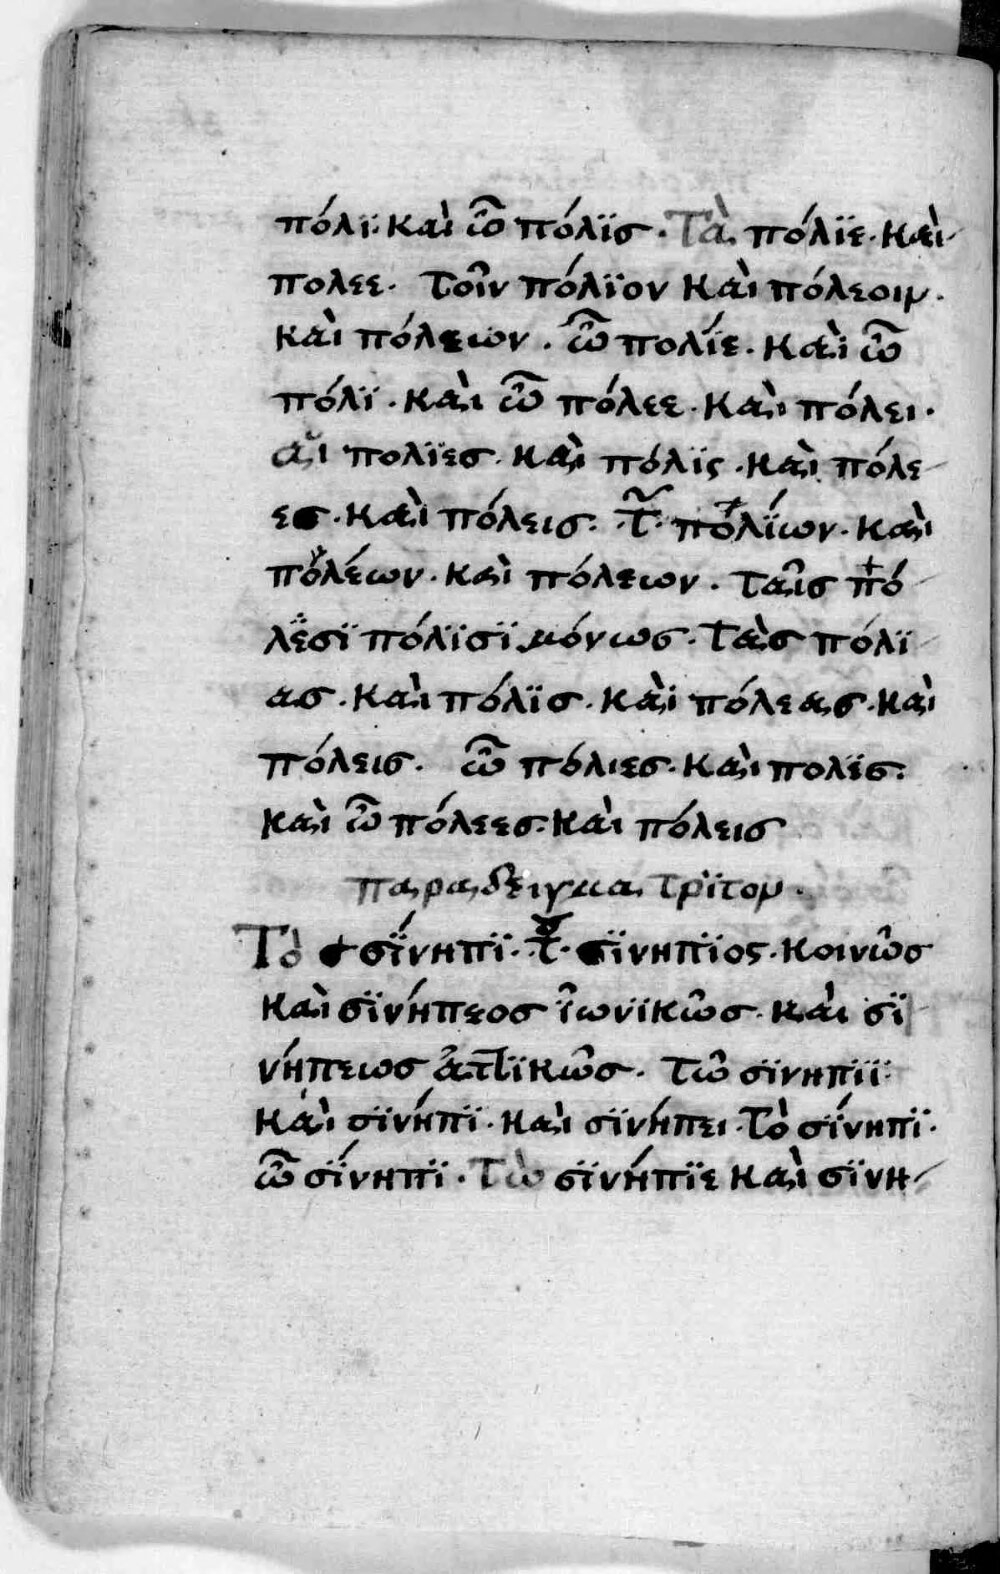 πόλϊ· καὶ ὦ πόλϊσ · Τὰ πόλϊε · καὶ
πολεε · τοῖν πόλϊον καὶ πόλεοιν ·
καὶ πόλεων · ὦ πολίε · καὶ ὦ
πόλϊ · καὶ ὦ πόλεε · καὶ πόλει ·
αἱ πολϊες · καὶ πόλϊς · καὶ πόλε
ες · καὶ πόλεισ · τ̃ · πολΐων · καὶ
πολέων · καὶ πόλεων · ταῖσ πό
λεσϊ πόλϊσϊ μόνωσ · τὰσ πόλϊ
ασ · καὶ πόλϊσ · καὶ πόλεας · καὶ
πόλεισ · ὦ πόλιεσ · καὶ πολϊσ :
καὶ ὦ πόλεεσ · καὶ πόλεισ
παραδειγμα τρϊτον ·
Τὸ σΐνηπϊ · τ̅ · σϊνηπϊος · κοινῶσ
καὶ σϊνήπεοσ ἰωνϊκῶσ · καὶ σϊ
νήπεωσ ἀττϊκῶσ · τῶ σϊνηπϊϊ ·
καὶ σϊνήπϊ · καὶ σϊνήπει · τὸ σΐνηπϊ ·
ὦ σΐνηπϊ · Τὼ σϊνήπϊε καὶ σϊνη